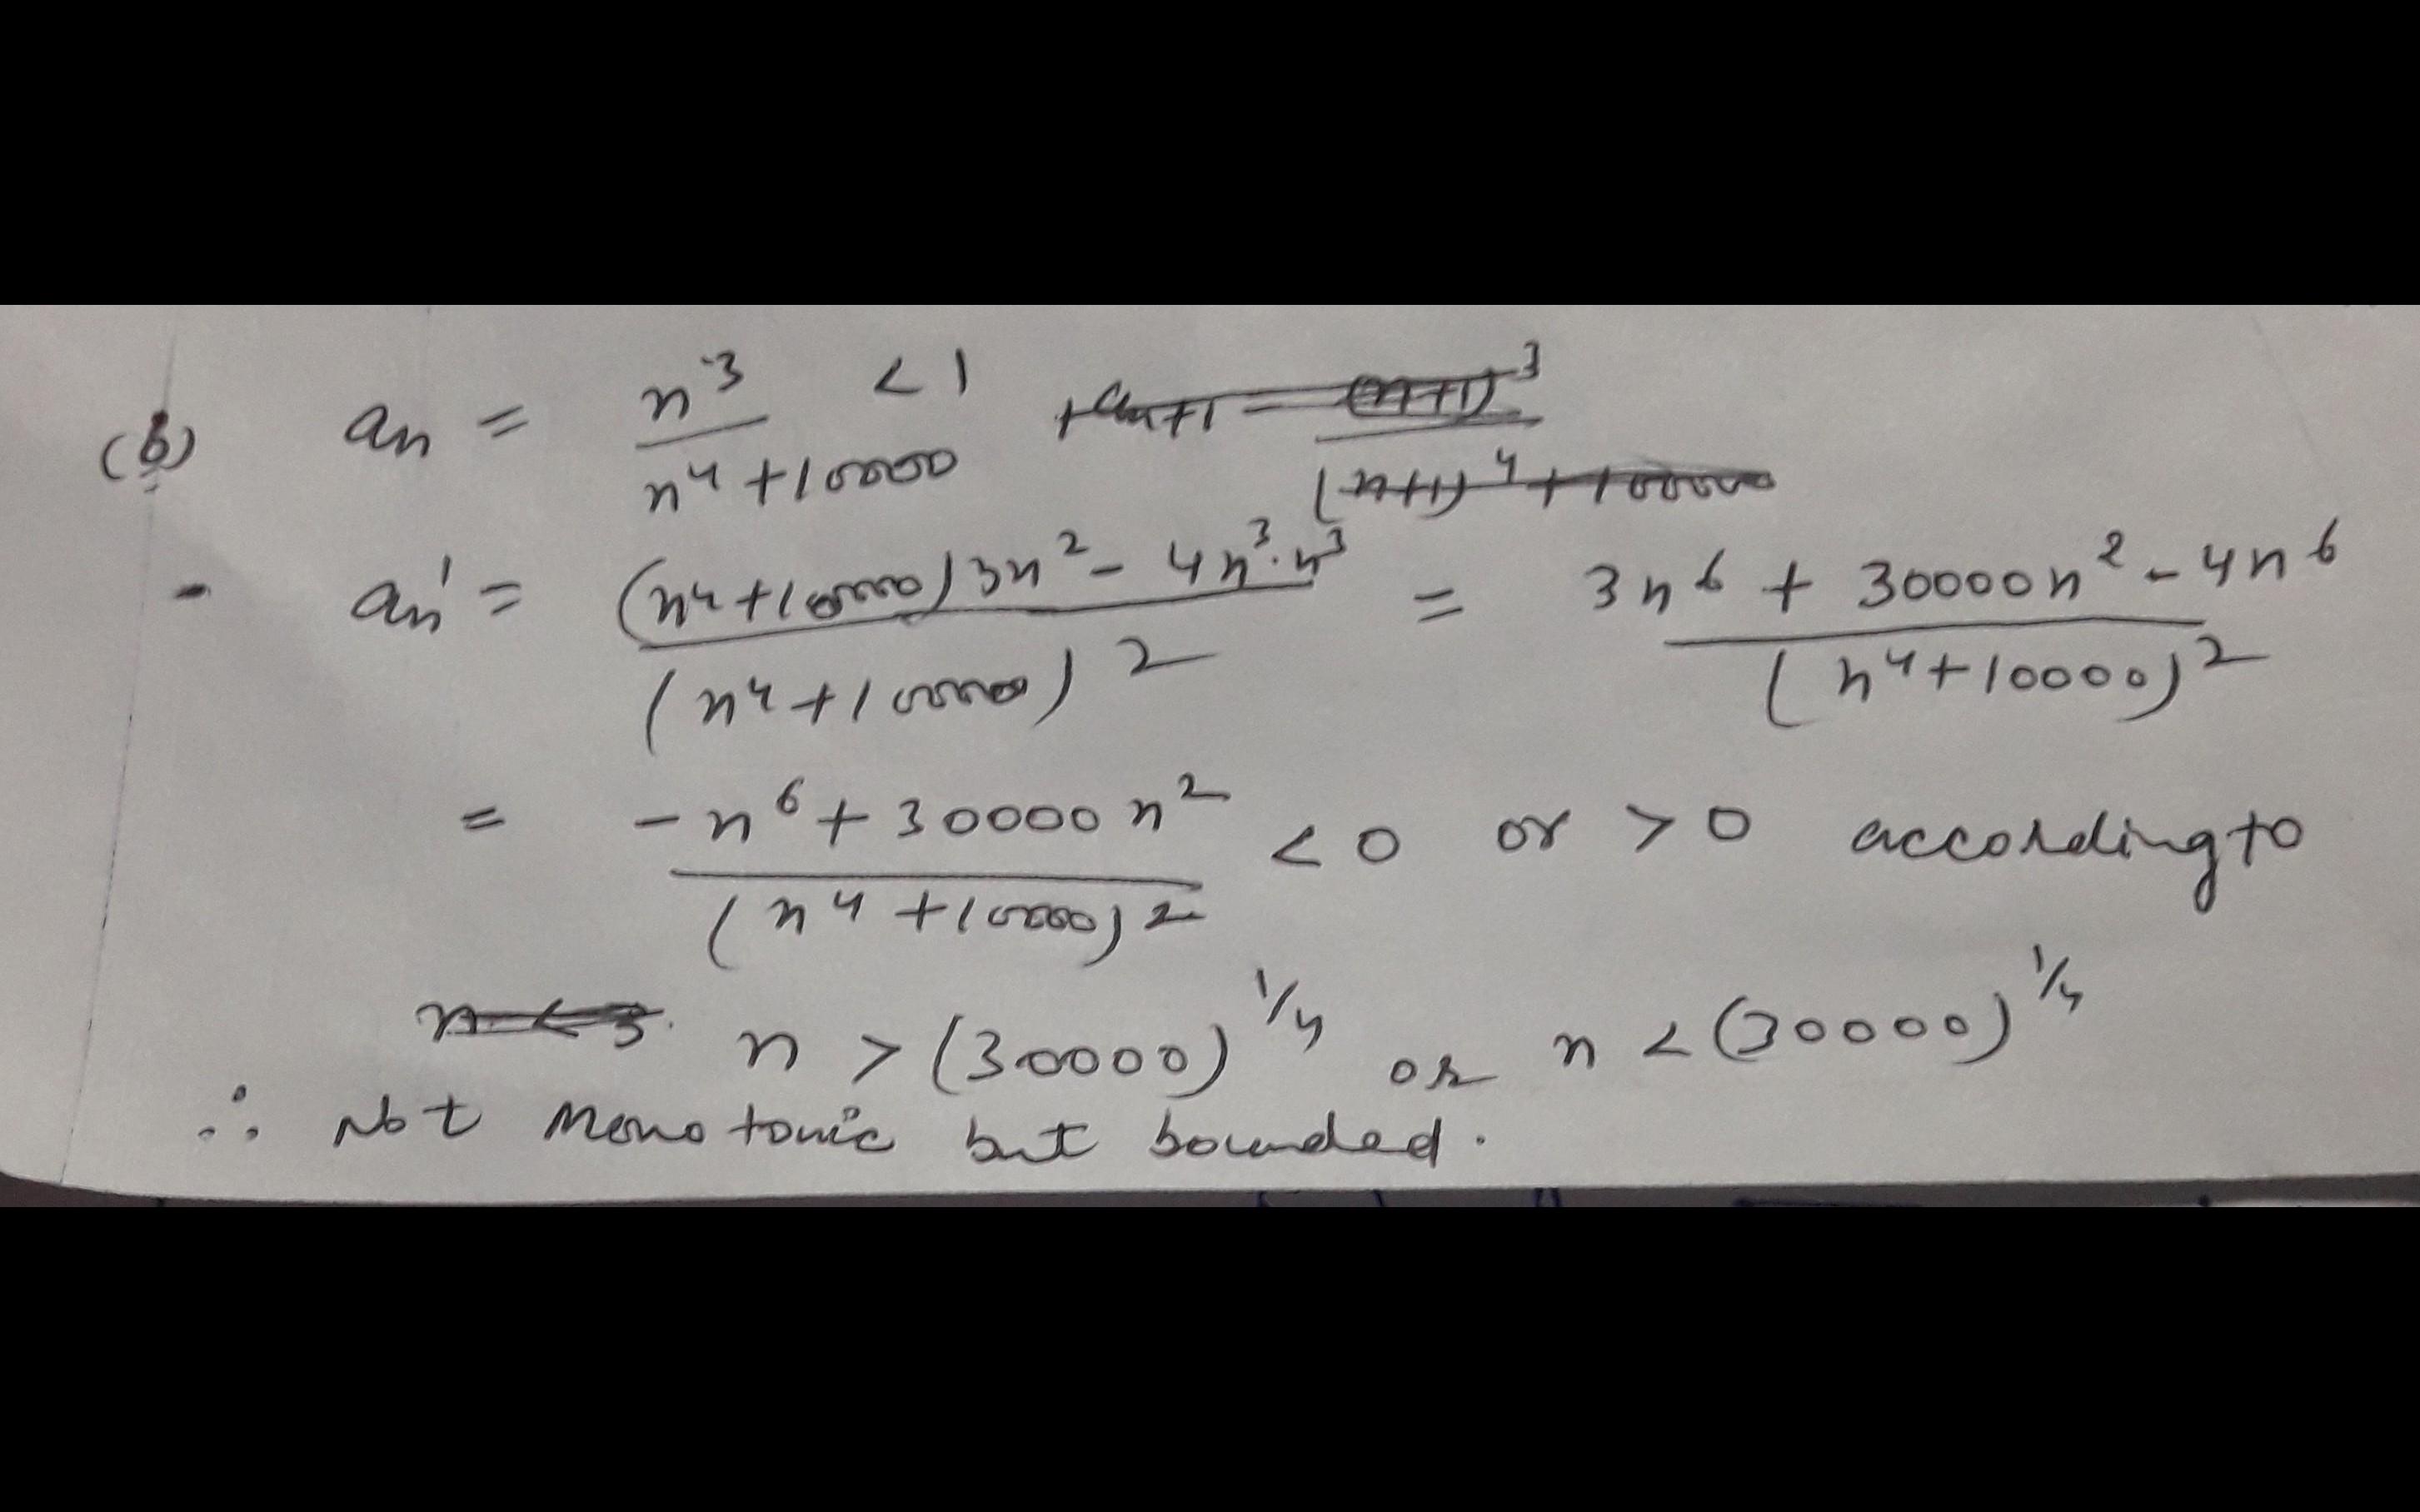 (b) an = n³/(n⁴+10000) <1 +an+1 = (n+1)³/((n+1)⁴+10000)
- an' = ((n⁴+10000)3n² - 4n³·n³)/(n⁴+10000)² = (3n⁶ + 30000n² - 4n⁶)/(n⁴+10000)²
= (-n⁶ + 30000n²)/(n⁴+10000)² < 0 or > 0 according to
n < 3 n > (30000)^1/4 or n < (30000)^1/4
∴ Not Monotonic but bounded.